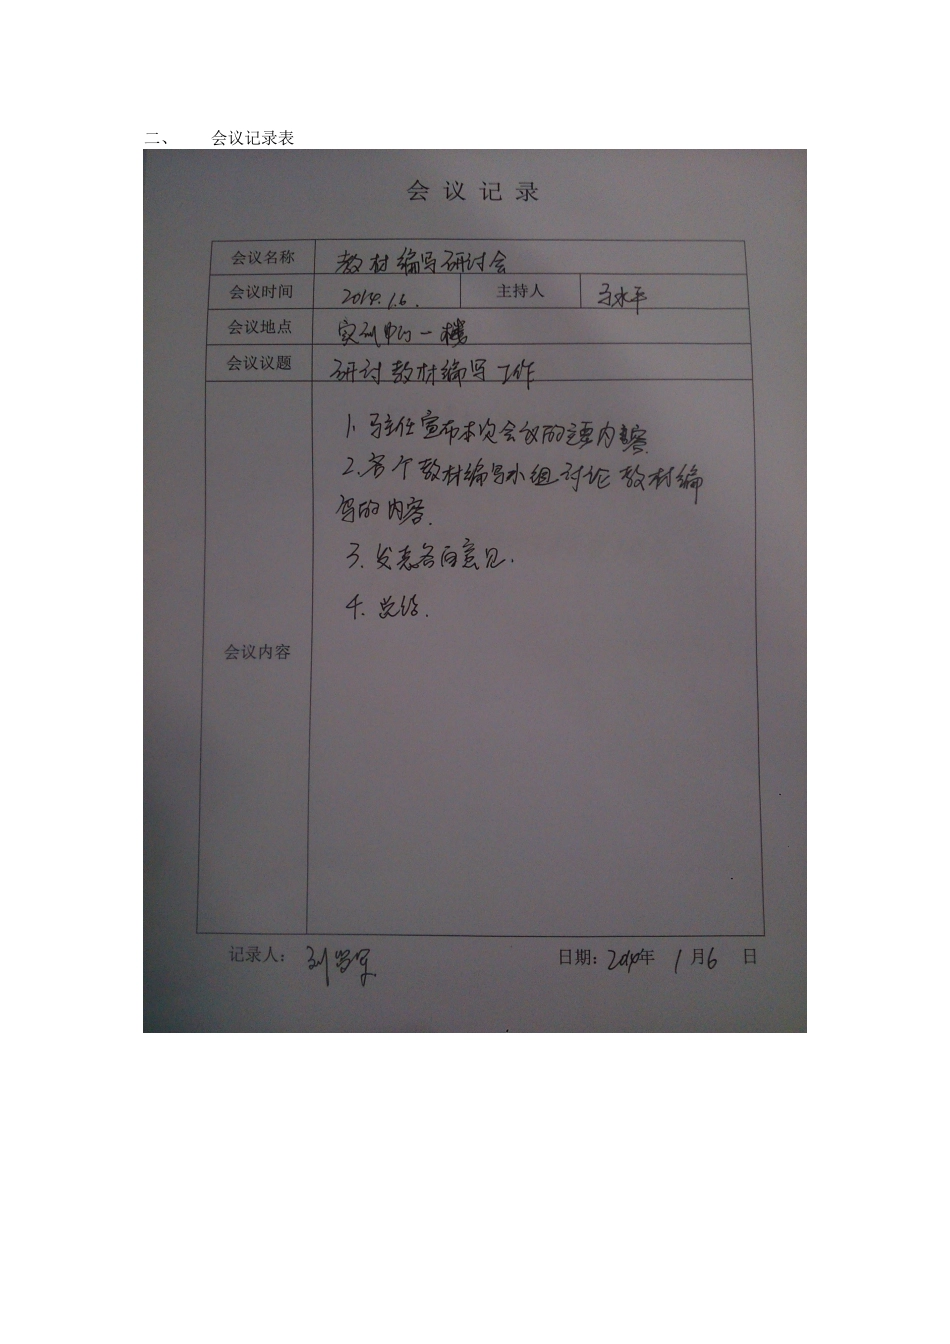 二、 会议记录表
会 议 记 录
会议名称 教材编写研讨会
会议时间 2014.1.6. 主持人 马水平
会议地点 实训中心一楼
会议议题 研讨教材编写工作
1. 马主任宣布本次会议的主要内容.
2. 各个教材编写小组讨论教材编
写的内容.
3. 发表各自意见.
4. 总结.
会议内容
记录人: 日期: 2014年 1 月 6 日